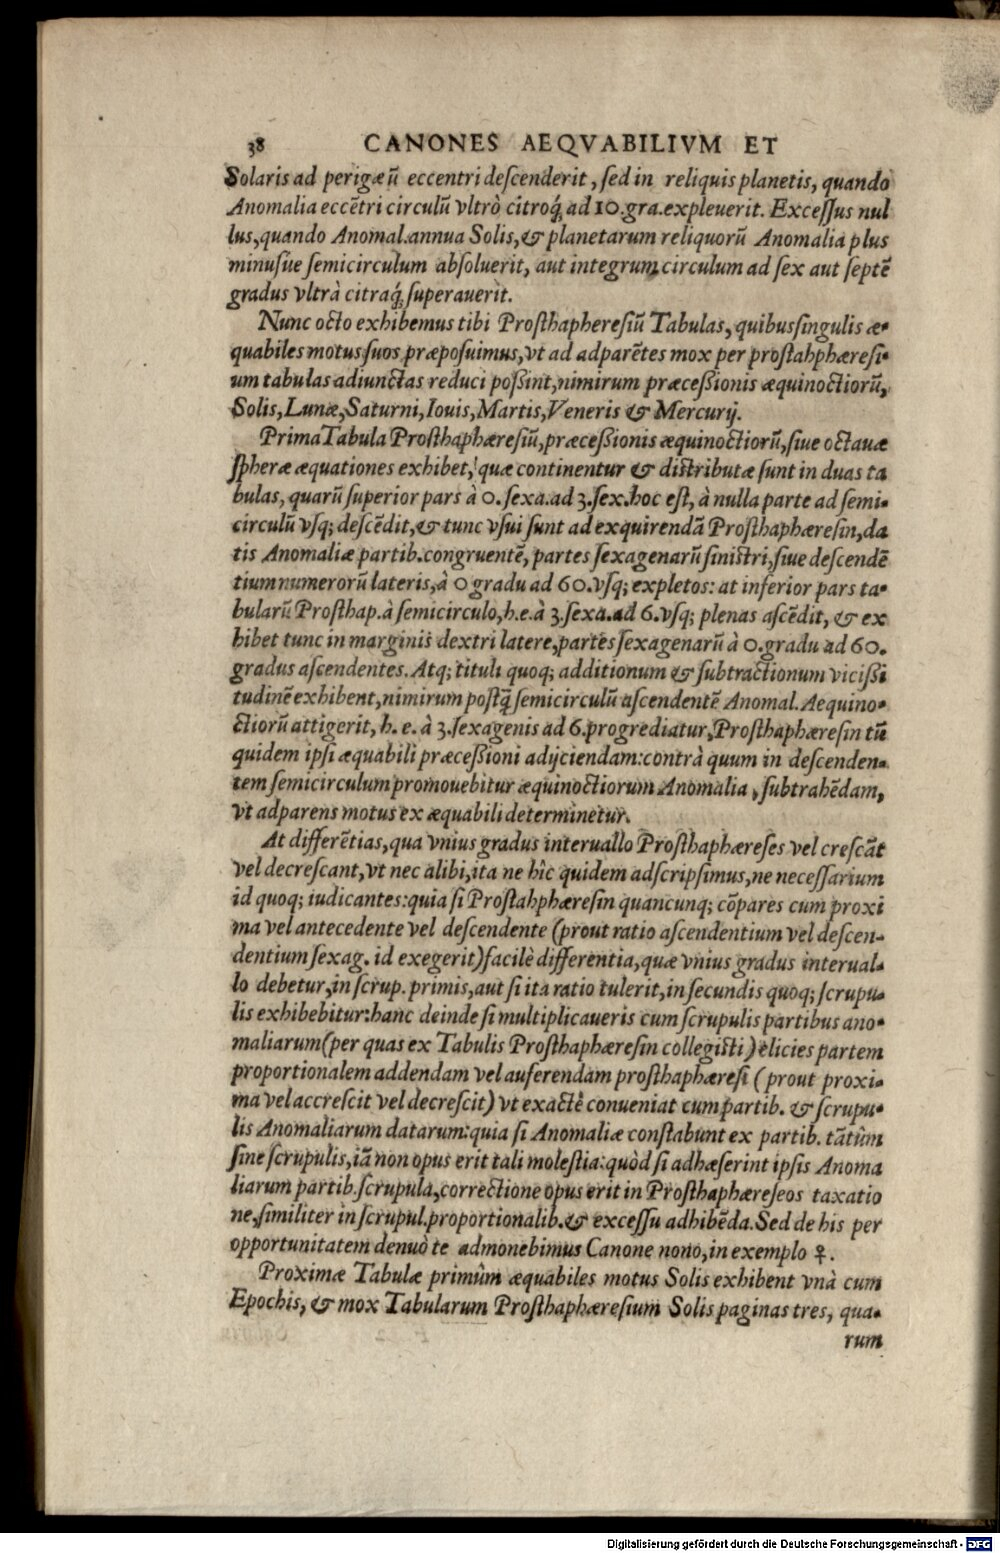 38 CANONES AEQVABILIVM ET
Solaris ad perigæũ eccentri deſcenderit, ſed in reliquis planetis, quando
Anomalia eccẽtri circulũ vltrò citroq́; ad 10. gra. expleuerit. Exceſſus nul
lus, quando Anomal. annua Solis, & planetarum reliquorũ Anomalia plus
minuſue ſemicirculum abſoluerit, aut integrum circulum ad ſex aut ſeptẽ
gradus vltrà citraq́; ſuperauerit.
Nunc octo exhibemus tibi Proſthaphereſiũ Tabulas, quibus ſingulis æ-
quabiles motus ſuos præpoſuimus, vt ad adparẽtes mox per proſtahphæreſi-
um tabulas adiunctas reduci poßint, nimirum præceßionis æquinoctiorũ,
Solis, Lunæ, Saturni, Iouis, Martis, Veneris & Mercurij.
Prima Tabula Proſthaphæreſiũ, præceßionis æquinoctiorũ, ſiue octauæ
ſpheræ æquationes exhibet, quæ continentur & diſtributæ ſunt in duas ta
bulas, quarũ ſuperior pars à 0. ſexa. ad 3. ſex. hoc eſt, à nulla parte ad ſemi-
circulũ vſq; deſcẽdit, & tunc vſui ſunt ad exquirendã Proſthaphæreſin, da
tis Anomaliæ partib. congruentẽ, partes ſexagenarũ ſiniſtri, ſiue deſcendẽ
tium numerorũ lateris, à 0 gradu ad 60. vſq; expletos: at inferior pars ta-
bularũ Proſthap. à ſemicirculo, h. e. à 3. ſexa. ad 6. vſq; plenas aſcẽdit, & ex
hibet tunc in marginis dextri latere, partes ſexagenarũ à 0. gradu ad 60.
gradus aſcendentes. Atq; tituli quoq; additionum & ſubtractionum vicißi
tudinẽ exhibent, nimirum poſtq̃ ſemicirculũ aſcendentẽ Anomal. Aequino-
ctiorũ attigerit, h. e. à 3. ſexagenis ad 6. progrediatur, Proſthaphæreſin tũ
quidem ipſi æquabili præceßioni adijciendam: contrà quum in deſcenden-
tem ſemicirculum promouebitur æquinoctiorum Anomalia, ſubtrahẽdam,
vt adparens motus ex æquabili determinetur.
At differẽtias, qua vnius gradus interuallo Proſthaphæreſes vel creſcãt
vel decreſcant, vt nec alibi, ita ne hîc quidem adſcripſimus, ne neceſſarium
id quoq; iudicantes: quia ſi Proſtahphæreſin quancunq; cõpares cum proxi
ma vel antecedente vel deſcendente (prout ratio aſcendentium vel deſcen-
dentium ſexag. id exegerit) facilè differentia, quæ vnius gradus interual-
lo debetur, in ſcrup. primis, aut ſi ita ratio tulerit, in ſecundis quoq; ſcrupu-
lis exhibebitur: hanc deinde ſi multiplicaueris cum ſcrupulis partibus ano-
maliarum (per quas ex Tabulis Proſthaphæreſin collegiſti) elicies partem
proportionalem addendam vel auferendam proſthaphæreſi (prout proxi-
ma vel accreſcit vel decreſcit) vt exactè conueniat cum partib. & ſcrupu-
lis Anomaliarum datarum: quia ſi Anomaliæ conſtabunt ex partib. tãtùm
ſine ſcrupulis, iã non opus erit tali moleſtia: quòd ſi adhæſerint ipſis Anoma
liarum partib. ſcrupula, correctione opus erit in Proſthaphæreſeos taxatio
ne, ſimiliter in ſcrupul. proportionalib. & exceſſu adhibẽda. Sed de his per
opportunitatem denuò te admonebimus Canone nono, in exemplo ♀.
Proximæ Tabulæ primùm æquabiles motus Solis exhibent vnà cum
Epochis, & mox Tabularum Proſthaphæreſium Solis paginas tres, qua-
rum
Digitalisierung gefördert durch die Deutsche Forschungsgemeinschaft - DFG